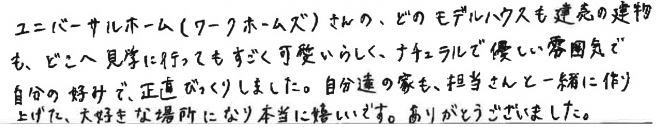 ユニバーサルホーム(ワークホームズ)さんの、どのモデルハウスも建売の建物
も、どこへ見学に行ってもすごく可愛いらしく、ナチュラルで優しい雰囲気で
自分の好みで、正直びっくりしました。自分達の家も、担当さんと一緒に作り
上げた、大好きな場所になり本当に嬉しいです。ありがとうございました。